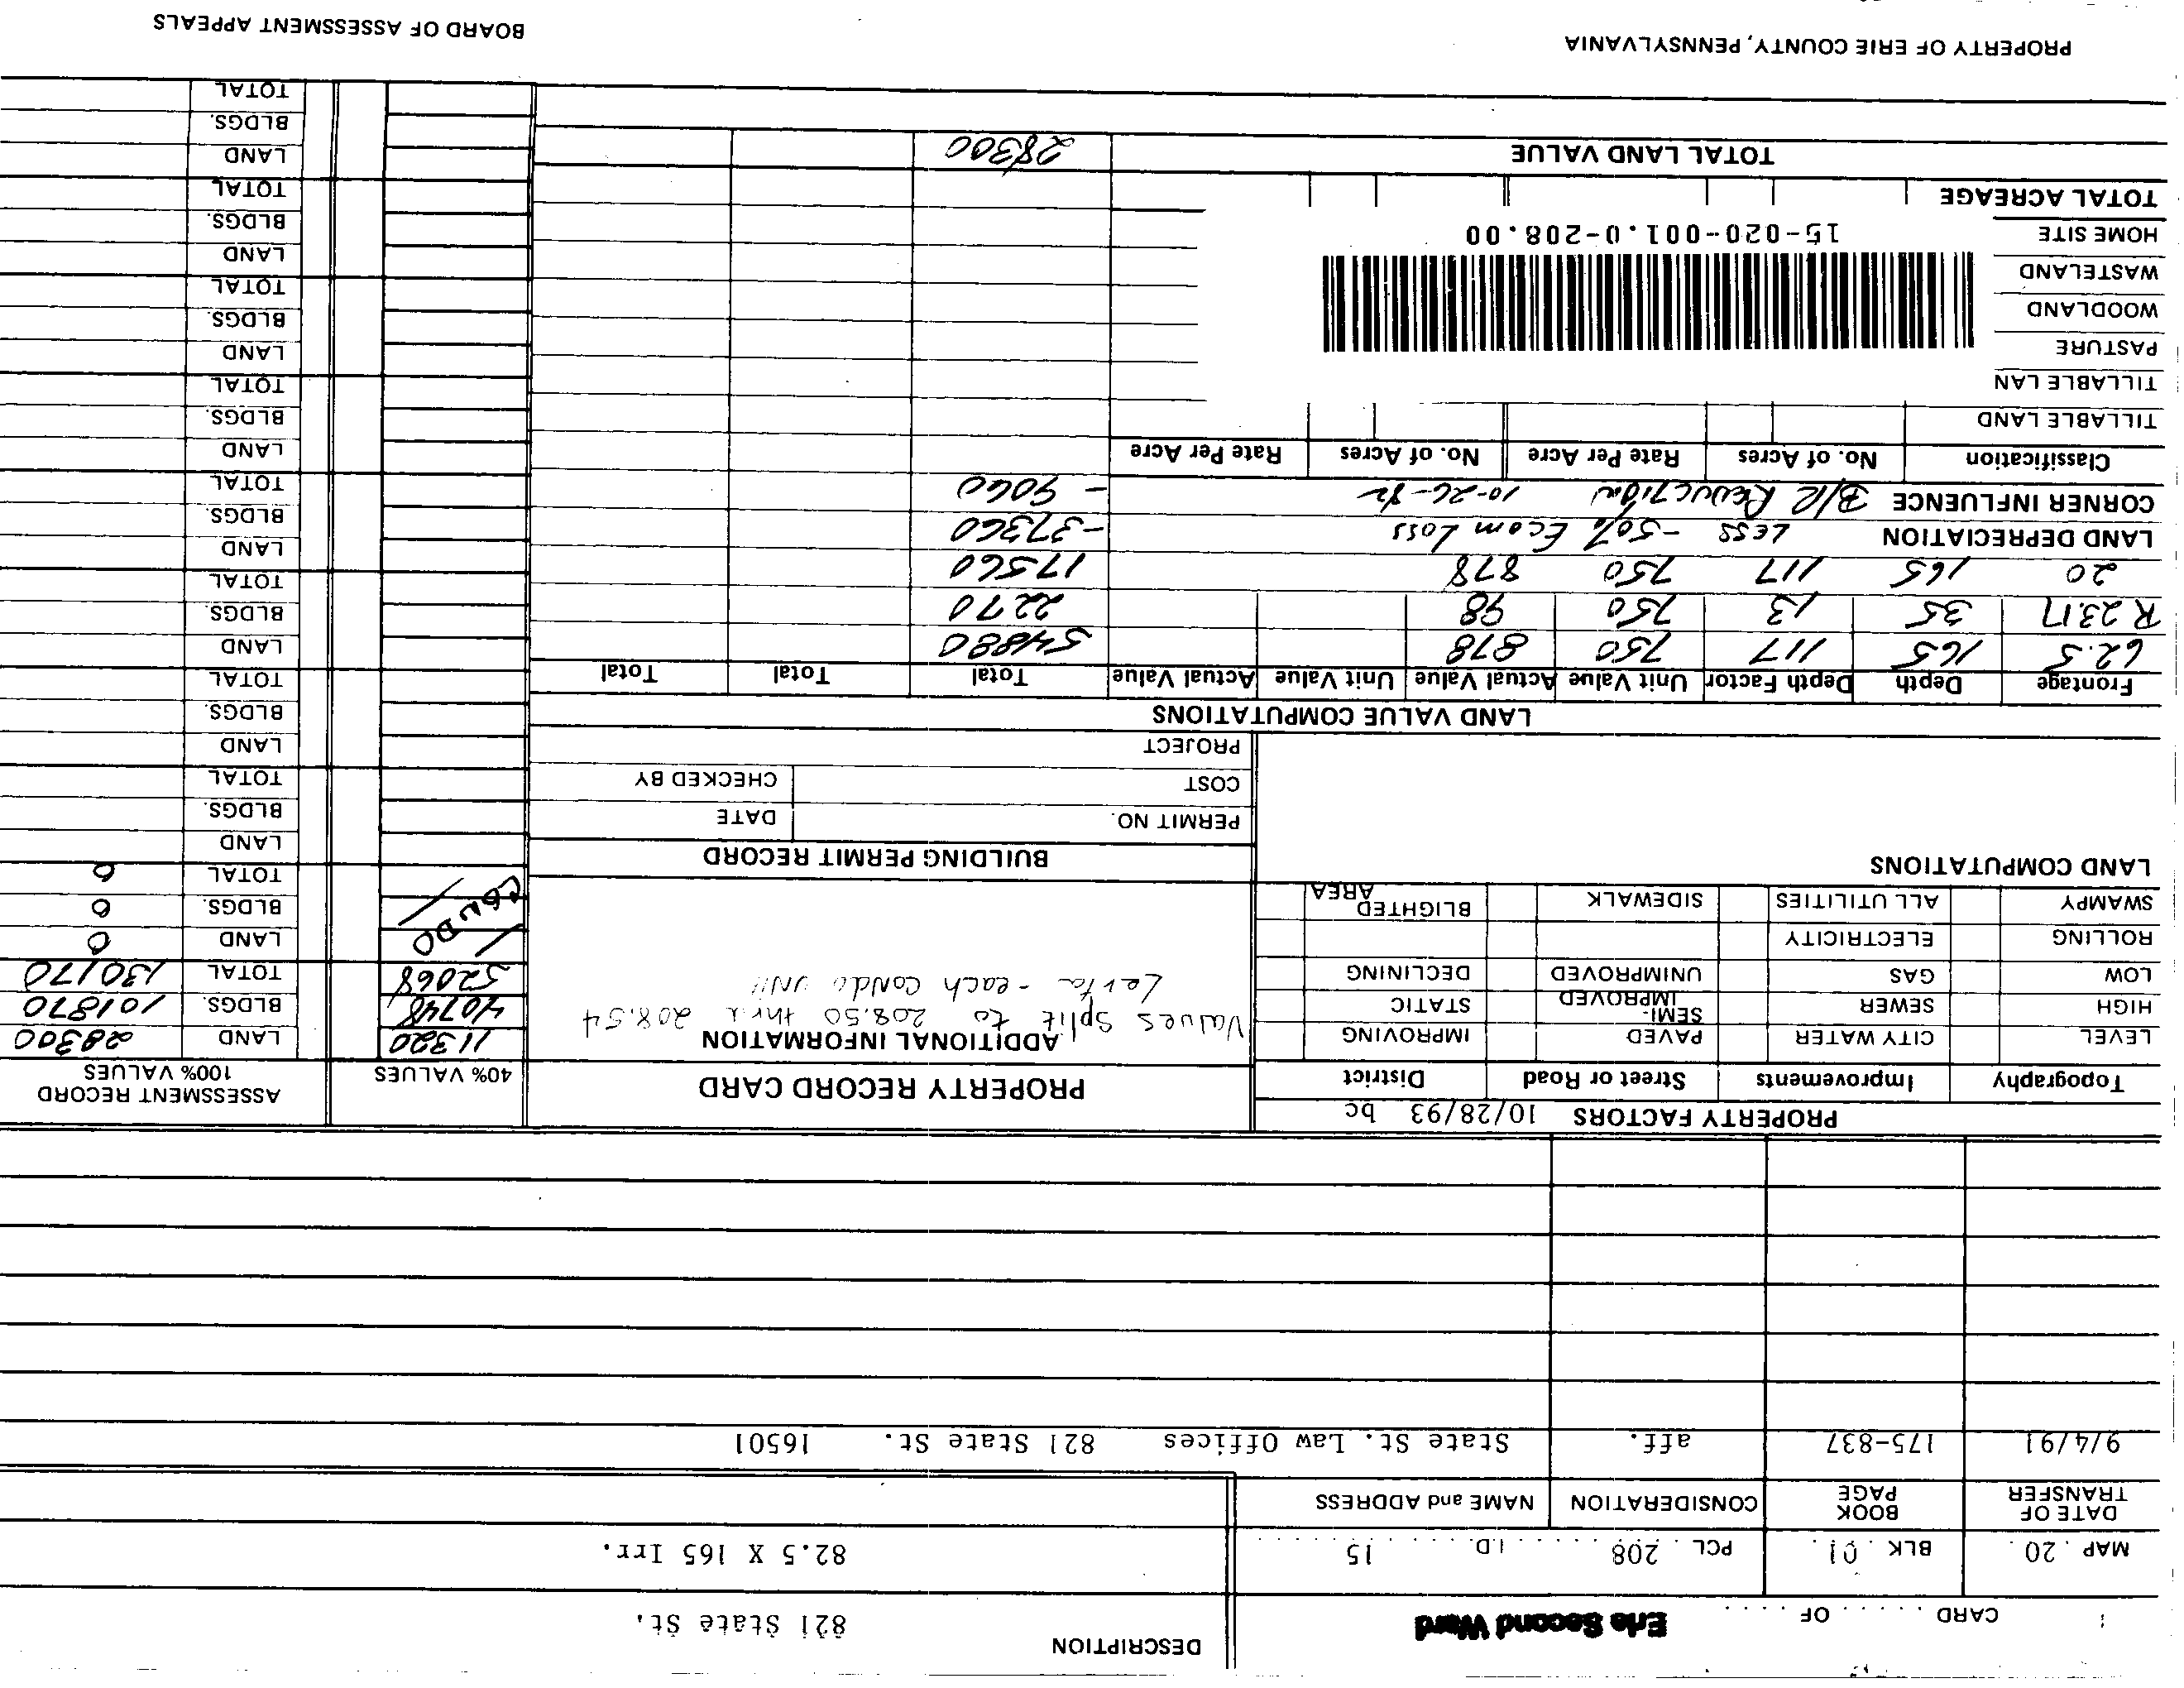 CARD . . . . . . OF . . . . . Erie Second Ward
DESCRIPTION 821 State St.
MAP . 20 . BLK . 01 . PCL . 208 . . . . . . I.D. . . . . 15 . . . . . 82.5 X 165 Irr.
DATE OF TRANSFER BOOK PAGE CONSIDERATION NAME and ADDRESS
9/4/91 175-837 aff. State St. Law Offices 821 State St. 16501
PROPERTY FACTORS 10/28/93 bc
PROPERTY RECORD CARD
40% VALUES
ASSESSMENT RECORD 100% VALUES
Topography Improvements Street or Road District
LEVEL CITY WATER PAVED IMPROVING
HIGH SEWER SEMI-IMPROVED STATIC
LOW GAS UNIMPROVED DECLINING
ROLLING ELECTRICITY
SWAMPY ALL UTILITIES SIDEWALK BLIGHTED AREA
ADDITIONAL INFORMATION
Values split to 208.50 thru 208.54
- each condo unit
11320 LAND 28300
40748 BLDGS. 101870
52068 TOTAL 130170
CONDO
LAND 0
BLDGS. 0
TOTAL 0
LAND COMPUTATIONS
BUILDING PERMIT RECORD
PERMIT NO. DATE
COST CHECKED BY
PROJECT
LAND
BLDGS.
TOTAL
LAND
BLDGS.
TOTAL
LAND VALUE COMPUTATIONS
Frontage Depth Depth Factor Unit Value Actual Value Unit Value Actual Value Total Total Total
62.5 165 117 750 878 54880
R 23.17 35 13 750 98 2270
20 165 117 750 878 17560
LAND DEPRECIATION LESS -50% Ecom Loss -37360
CORNER INFLUENCE B/R REDUCTION 10-26-82 - 9060
LAND
BLDGS.
TOTAL
LAND
BLDGS.
TOTAL
Classification No. of Acres Rate Per Acre No. of Acres Rate Per Acre
TILLABLE LAND
TILLABLE LAN
PASTURE
WOODLAND
WASTELAND
HOME SITE
15-020-001.0-208.00
TOTAL ACREAGE
TOTAL LAND VALUE 28300
LAND
BLDGS.
TOTAL
LAND
BLDGS.
TOTAL
LAND
BLDGS.
TOTAL
LAND
BLDGS.
TOTAL
PROPERTY OF ERIE COUNTY, PENNSYLVANIA
BOARD OF ASSESSMENT APPEALS